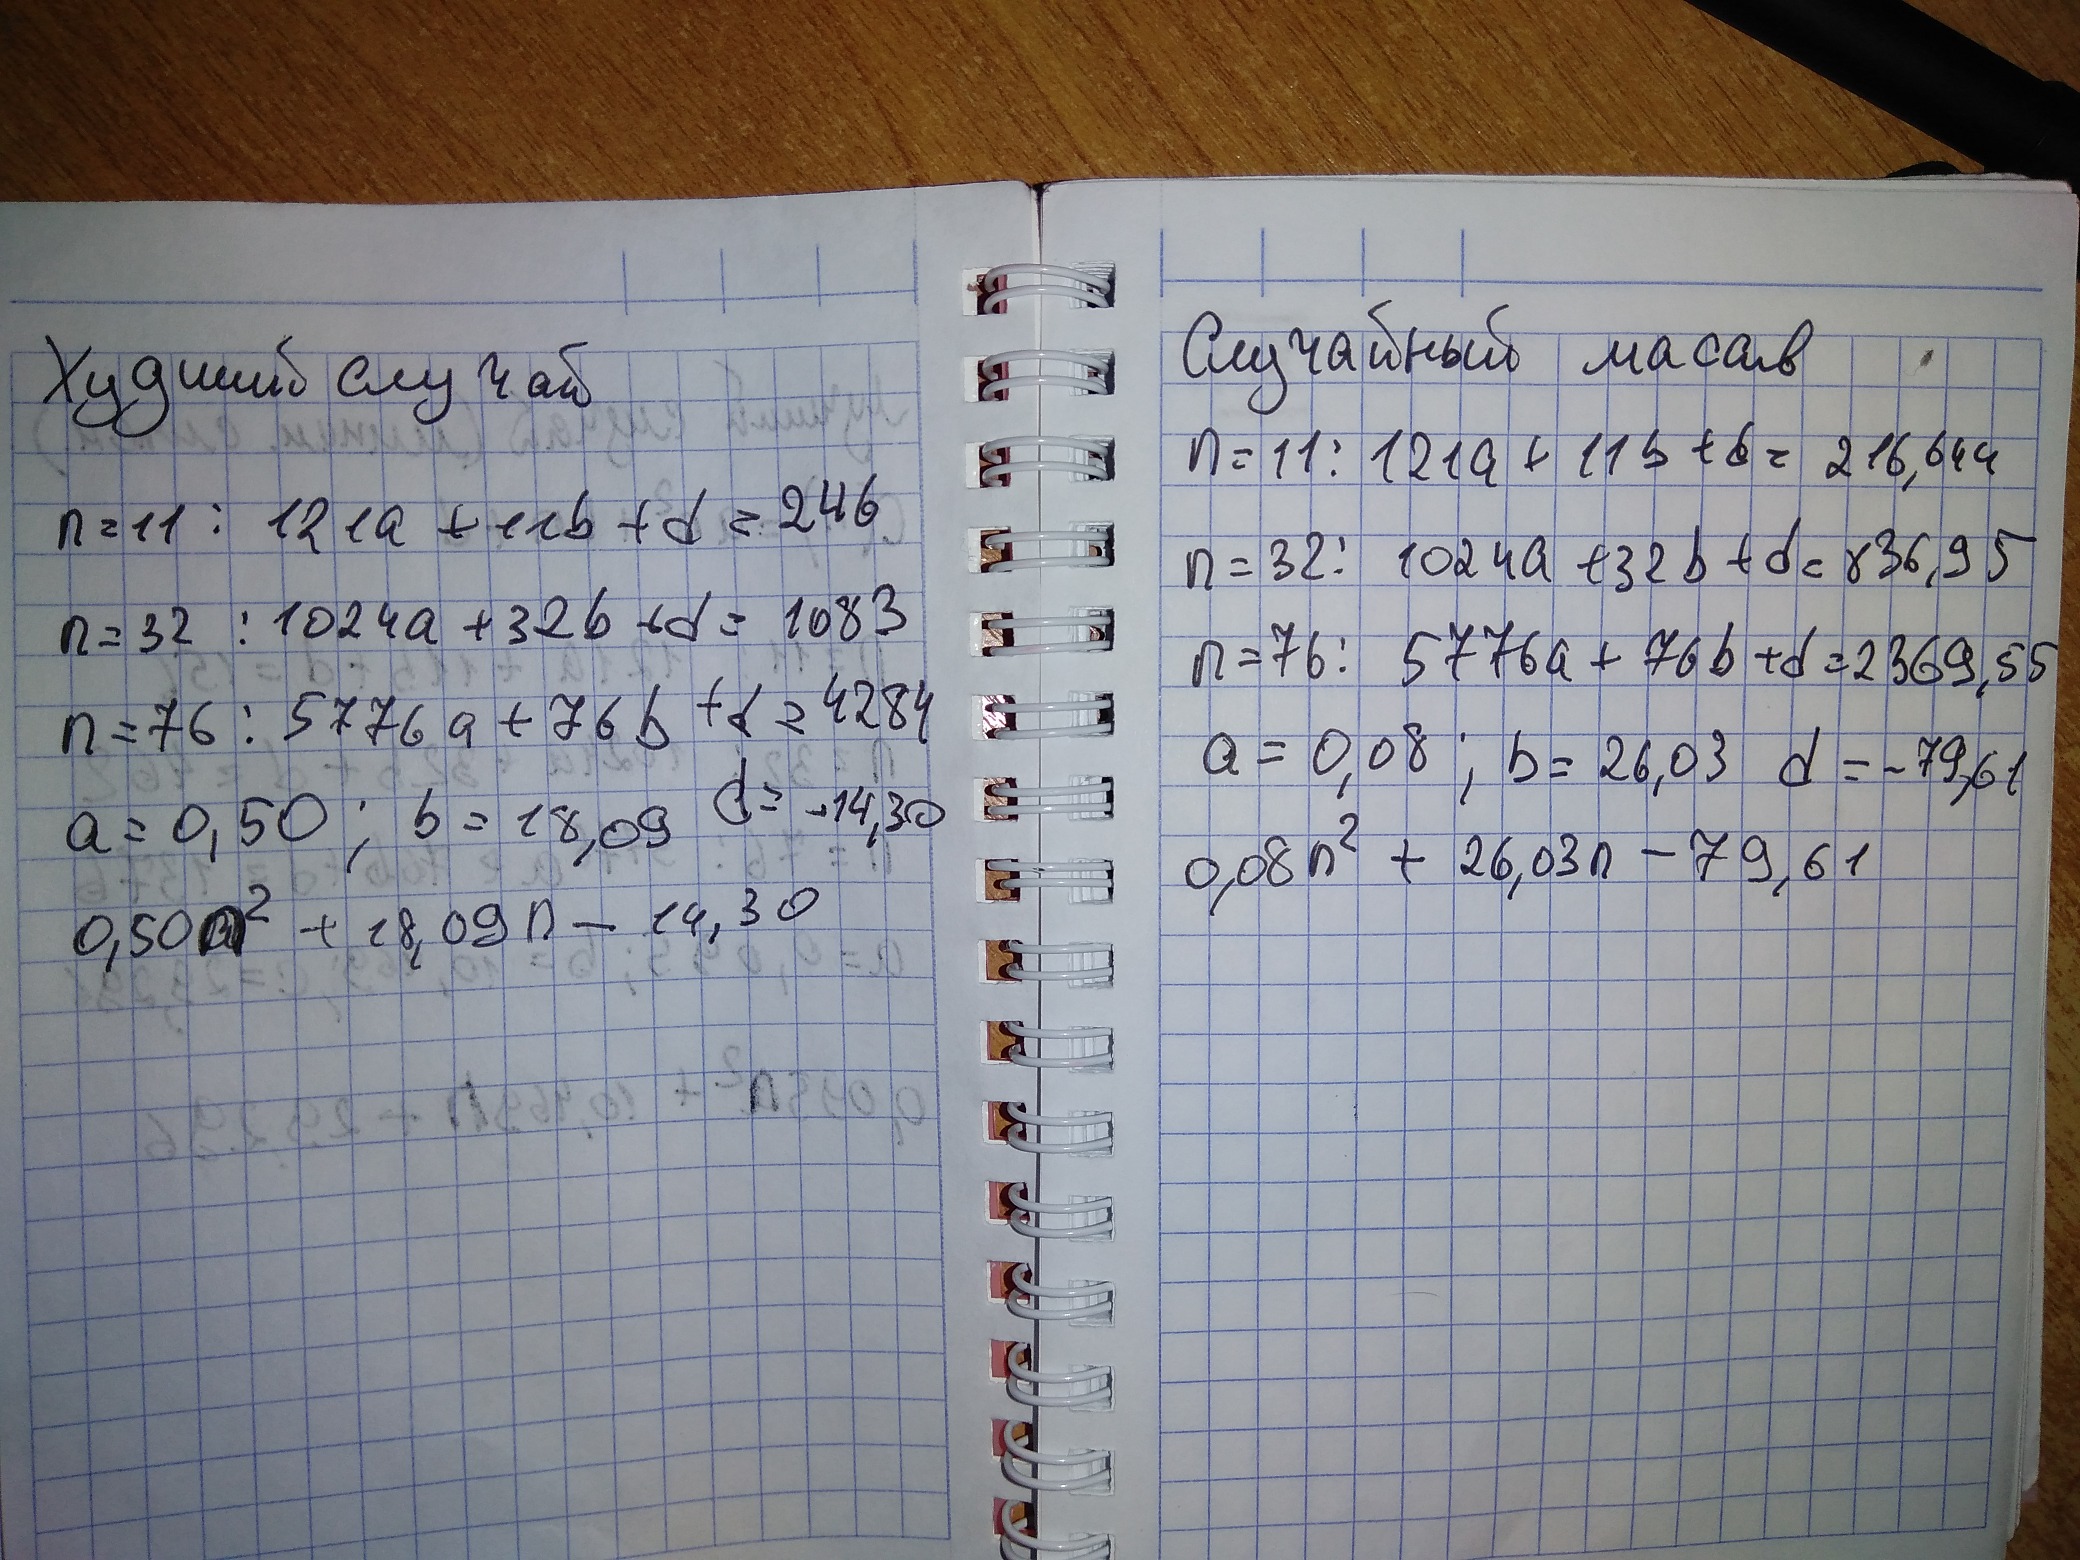 Худший случай
n=11: 121a + 11b + d = 246
n=32: 1024a + 32b + d = 1083
n=76: 5776a + 76b + d = 4284
a = 0,50; b = 18,09 d = -14,30
0,50n² + 18,09n - 14,30
Случайный масив
n=11: 121a + 11b + d = 216,644
n=32: 1024a + 32b + d = 836,95
n=76: 5776a + 76b + d = 2369,55
a = 0,08; b = 26,03 d = -79,61
0,08n² + 26,03n - 79,61